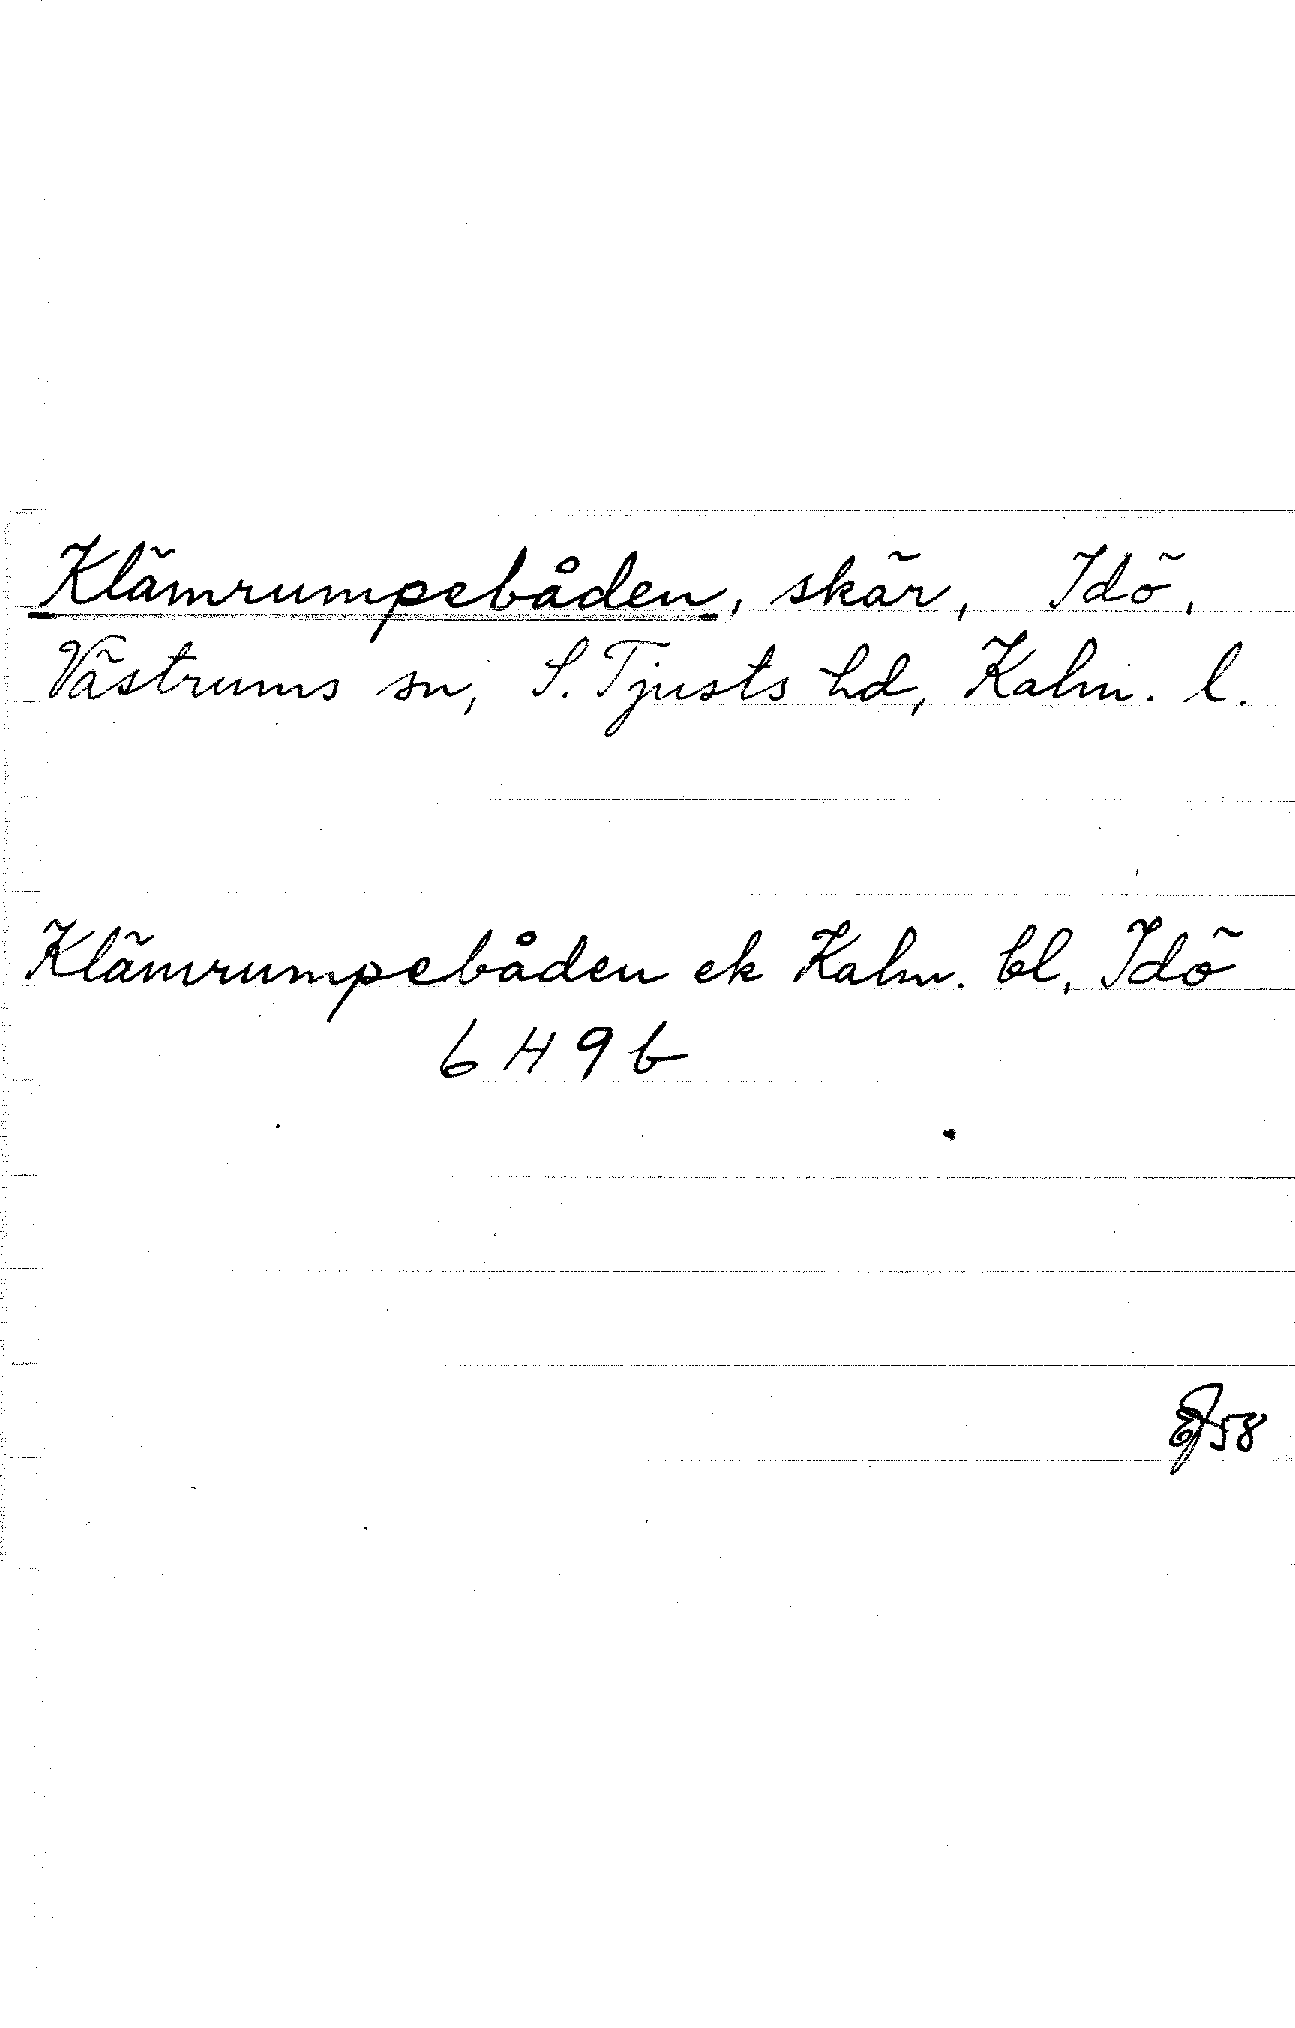 Klämrumpebåden, skär, Idö,
Västrums sn, S. Tjusts hd, Kalm. l.
Klämrumpebåden ek Kalm. bl. Idö
6 H 9 b
58